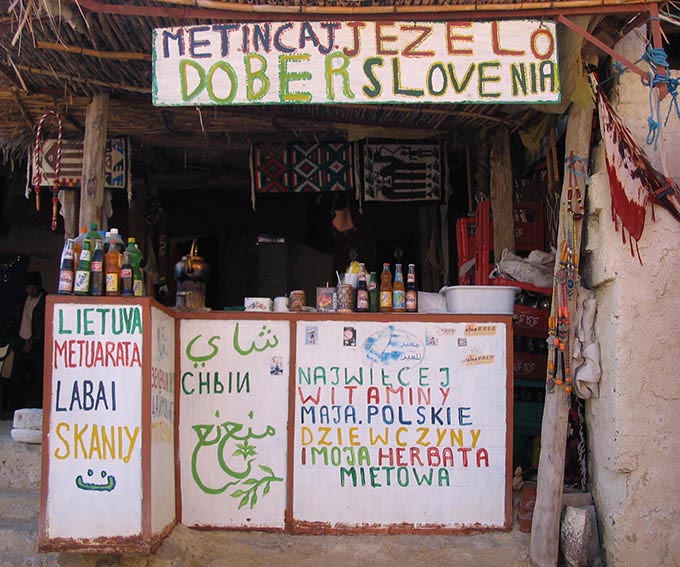 METINCAJ.JEZELO
DOBER SLOVENIA
LIETUVA
METUARATA
LABAI
SKANIY
شاي
CHЫИ
منعنع
NAJWIĘCEJ
WITAMINY
MAJA.POLSKIE
DZIEWCZYNY
I MOJA HERBATA
MIETOWA